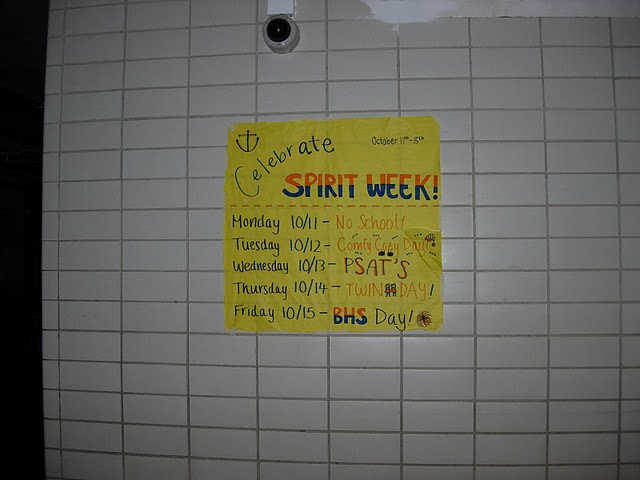 Celebrate
October 11th-15th
SPIRIT WEEK!
Monday 10/11 - No School!
Tuesday 10/12 - Comfy Cozy Day!
Wednesday 10/13 - PSAT'S
Thursday 10/14 - TWIN DAY!
Friday 10/15 - BHS Day!